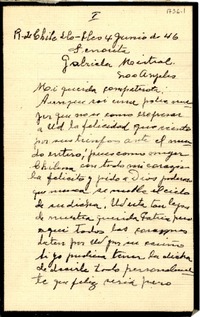 I
1736-1
R. de Chile
4 Junio de 46
Señorita
Gabriela Mistral
Los Angeles
Mi querida compatriota:
Aunque soi una pobre mu-
jer que no se como espresar
a Ud la felicidad que siento
por sus triunfos ante el mun-
do entero, pues como mujer
Chilena con todo mi corazon
la felicito y pido a Dios poderoso
que nunca se nuble el cielo
de su dicha. Ud esta tan lejos
de nuestra querida Patria pero
aqui todos los corazones
laten por Ud por su cariño
Si yo pudiera tener la dicha
de decirle todo personalmen-
te que feliz seria pero